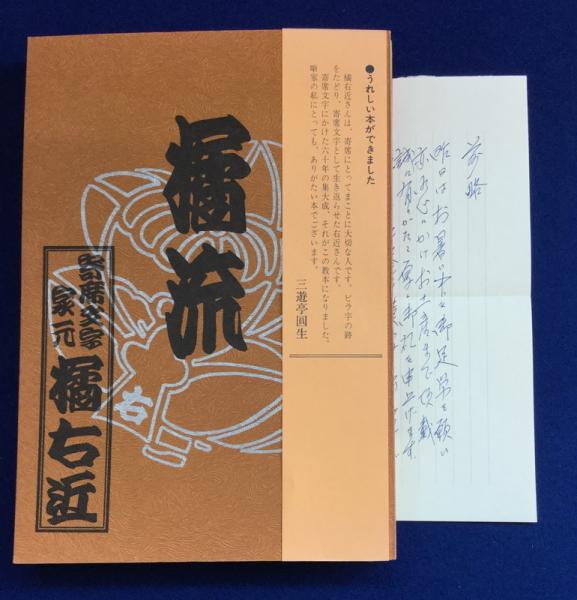 橘流
寄席文字
家元
橘右近
右
●うれしい本ができました
橘右近さんは、寄席にとってまことに大切な人です。ビラ字の跡
をたどり、寄席文字として生き返らせた右近さんです。
寄席文字にかけた六十年の集大成、それがこの教本になりました。
噺家の私にとっても、ありがたい本でございます。
三遊亭圓生
前略
昨日はお暑い中を御足労を願い
亦お心にかけお土産まで頂戴
誠に有りがたく厚く御礼を申上げます